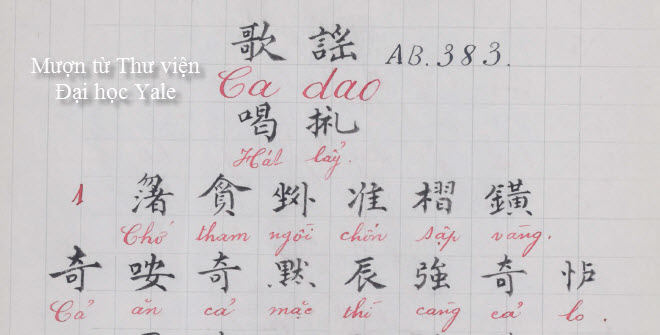 歌謡 AB.383.
Mượn từ Thư viện
Đại học Yale
Ca dao
喝𢭮
Hát lẩy.
1 渚貪𡎢准榴鐄
Chớ tham ngôi chốn sập vàng.
奇咹奇默辰強奇怙
Cả ăn cả mặc thì càng cả lo.